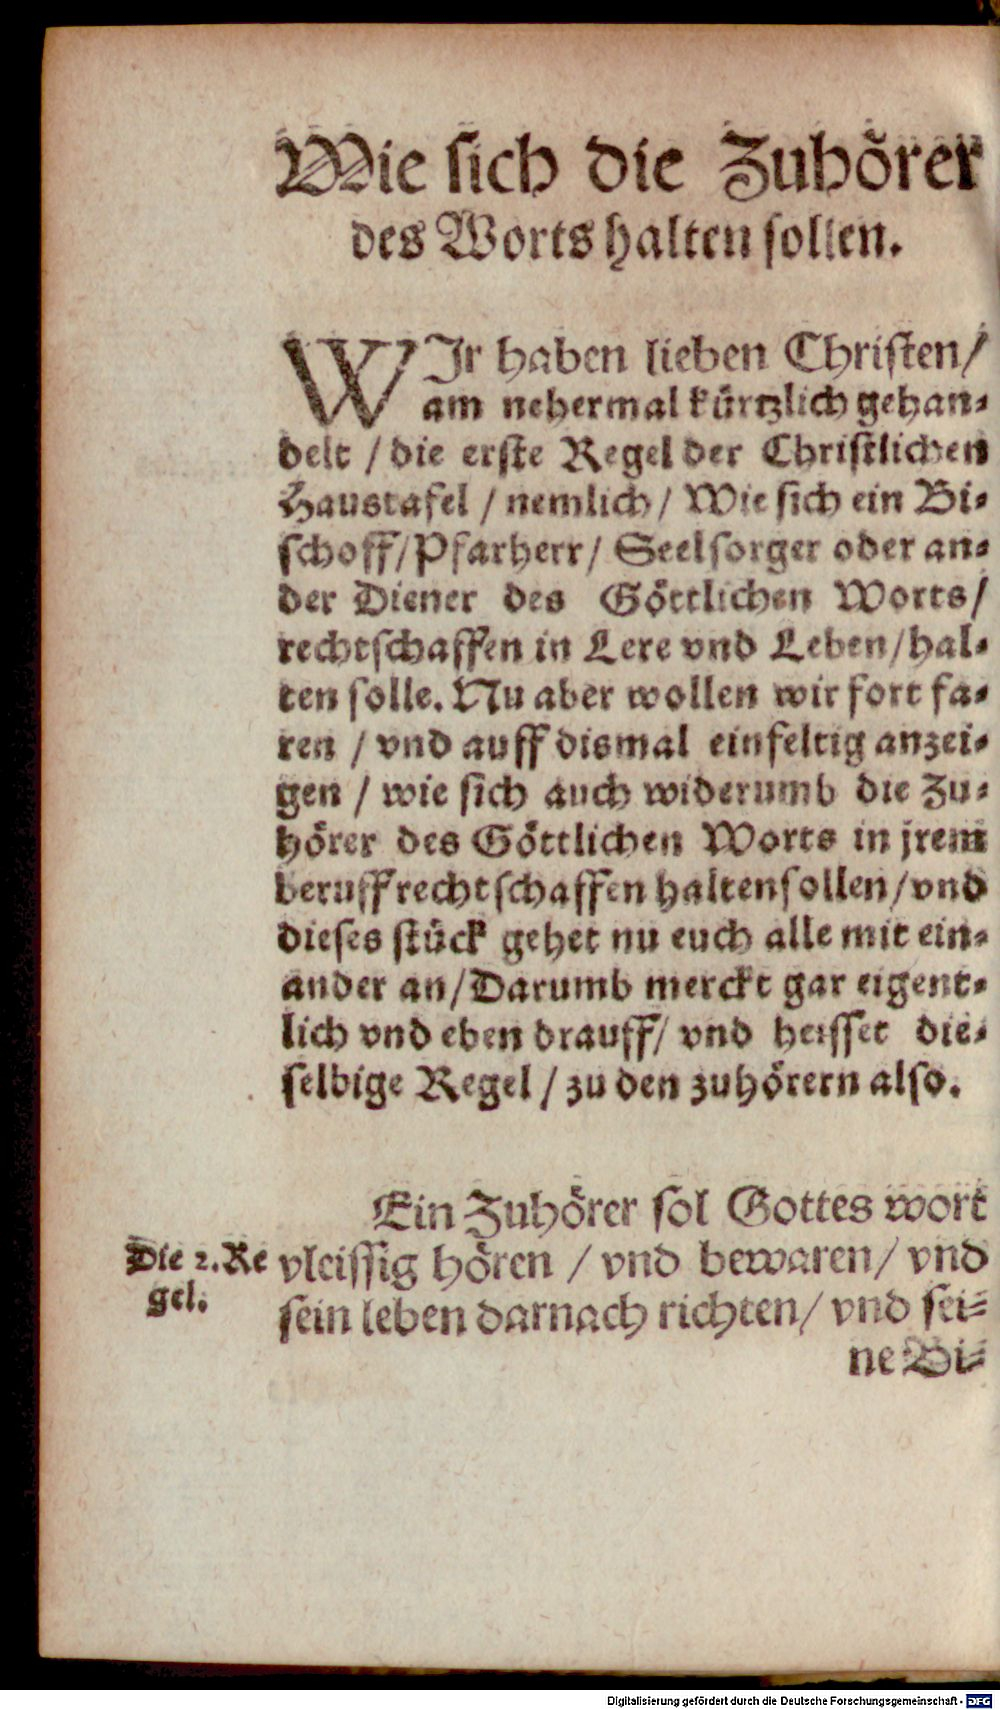 Wie sich die Zuhörer
des Worts halten sollen.
WIr haben lieben Christen/
am nehermal kürtzlich gehan-
delt / die erste Regel der Christlichen
Haustafel / nemlich / Wie sich ein Bi-
schoff/Pfarherr/ Seelsorger oder an-
der Diener des Göttlichen Worts/
rechtschaffen in Lere vnd Leben/hal-
ten solle. Nu aber wollen wir fort fa-
ren / vnd auff dismal einfeltig anzei-
gen / wie sich auch widerumb die Zu-
hörer des Göttlichen Worts in jrem
beruff rechtschaffen halten sollen/vnd
dieses stück gehet nu euch alle mit ein-
ander an/Darumb merckt gar eigent-
lich vnd eben drauff/ vnd heisset die-
selbige Regel / zu den zuhörern also.
Ein Zuhörer sol Gottes wort
Die 2. Re
gel.
vleissig hören / vnd bewaren/ vnd
sein leben darnach richten/ vnd sei-
ne Bi-
Digitalisierung gefördert durch die Deutsche Forschungsgemeinschaft - DFG